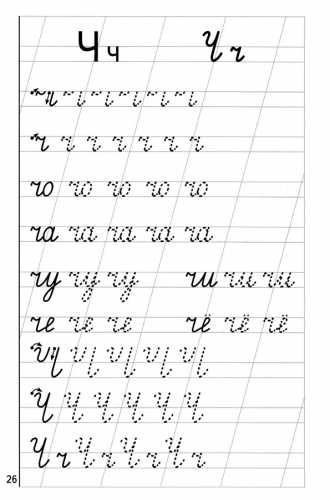 Ч ч Ч ч
ч ч ч ч ч ч ч
чо чо чо чо чо
ча ча ча ча ча
чу чу чу чи чи чи
че че че чё чё чё
Ч Ч Ч Ч Ч Ч
Ч ч Ч ч Ч ч Ч ч
26